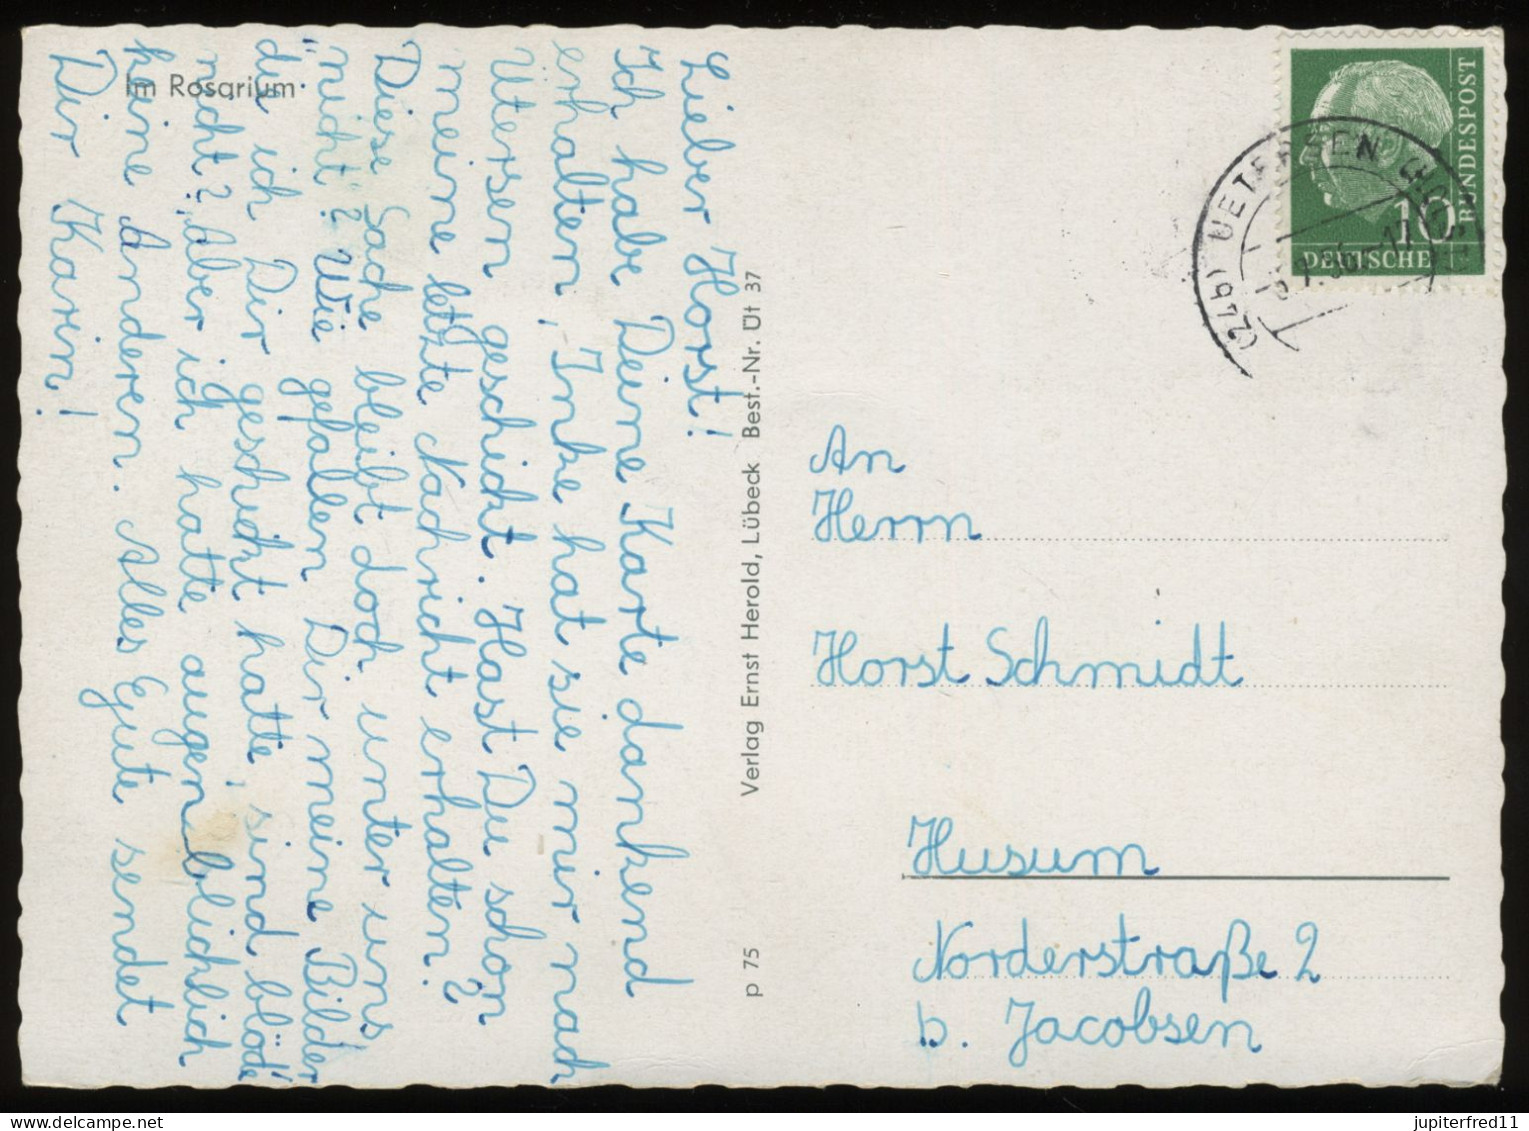 Im Rosarium
Lieber Horst!
Ich habe Deine Karte dankend
erhalten, Inke hat sie mir nach
Utersen geschickt. Hast Du schon
meine letzte Nachricht erhalten?
Diese Sache bleibt doch unter uns
nicht? Wie gefallen Dir meine Bilder
die ich Dir geschickt hatte, sind blöde
nicht? Aber ich hatte augenblicklich
keine Anderen. Alles Gute sendet
Dir Karin!
Verlag Ernst Herold, Lübeck Best.-Nr. Üt 37
p 75
DEUTSCHE
BUNDESPOST
10
(24b) UETERSEN (HOLST
An
Herrn
Horst Schmidt
Husum
Norderstraße 2
b. Jacobsen
jupiterfred11